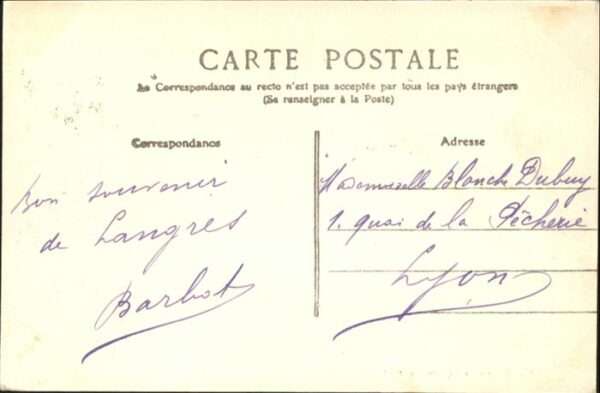 CARTE POSTALE
La Correspondance au recto n'est pas acceptée par tous les pays étrangers
(Se renseigner à la Poste)
Correspondance
Adresse
Bon souvenir
de Langres
Barbot
Mademoiselle Blanche Dubuy
1. quai de la Pêcherie
Lyon